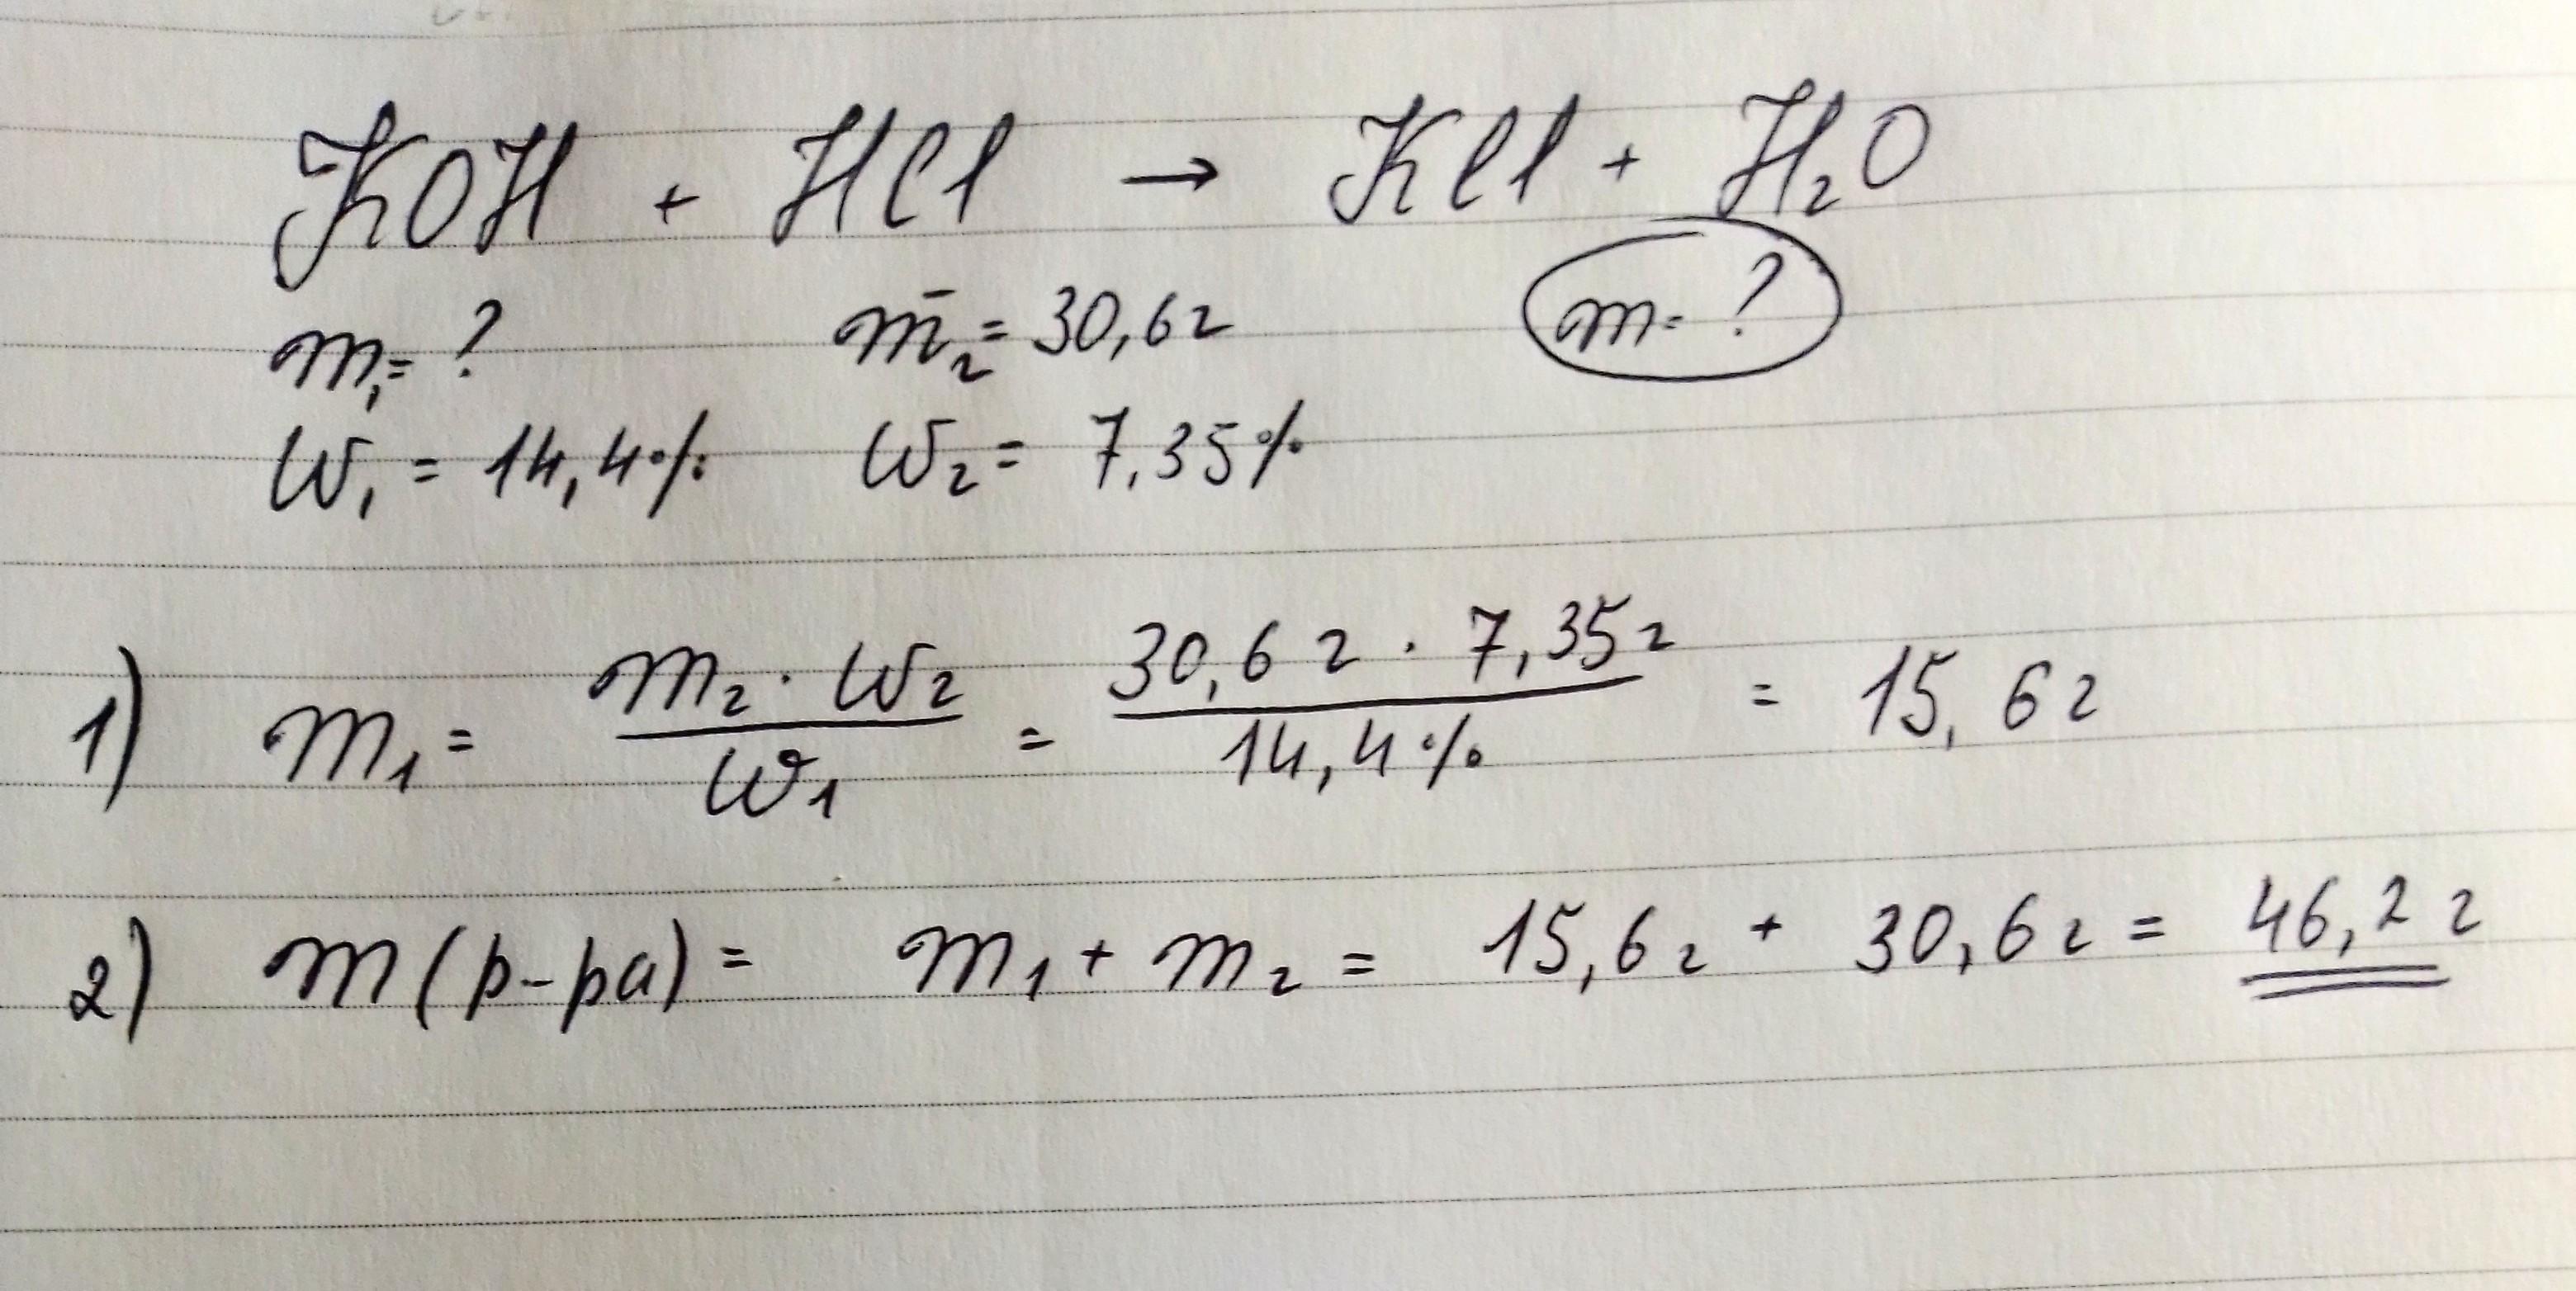 KOH + HCl → KCl + H₂O
m₁ = ? m₂ = 30,6 г m = ?
W₁ = 14,4 % W₂ = 7,35 %
1) m₁ = m₂ · W₂ / W₁ = 30,6 г · 7,35 г / 14,4 % = 15,6 г
2) m (р-ра) = m₁ + m₂ = 15,6 г + 30,6 г = 46,2 г